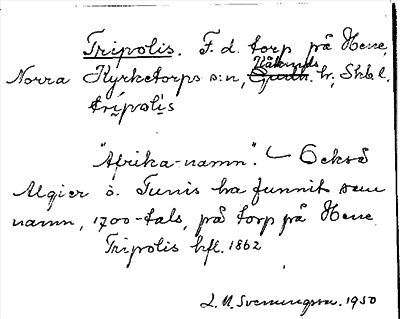 Tripolis. F. d. torp på Hene,
Norra Kyrketorps s:n, Kåkinds
Gudh. hr, Skbl.
trípolis
"Afrika-namn". Också
Algier o. Tunis ha funnits som
namn, 1700-tals, på torp på Hene.
Tripolis hfl. 1862
L. M. Svenungsson. 1950